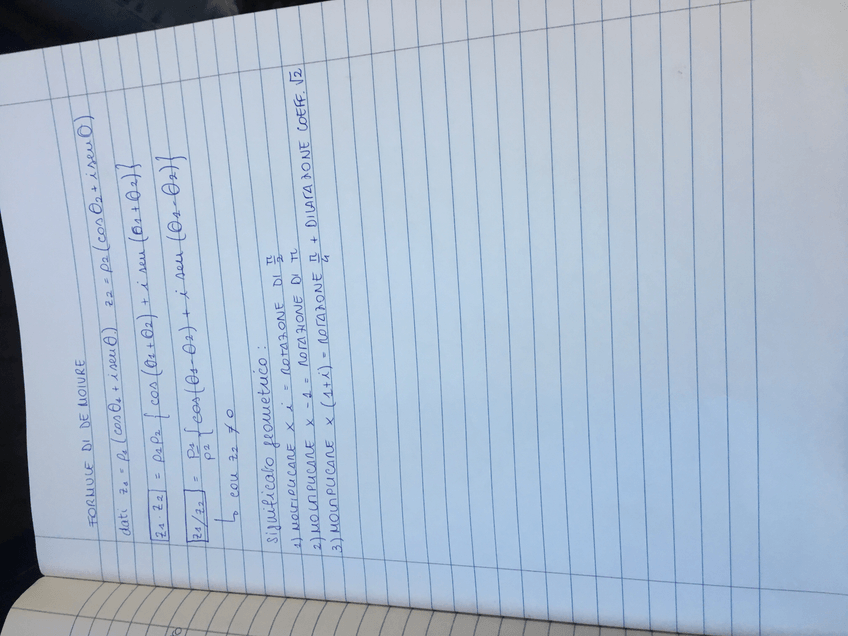 FORMULE DI DE MOIVRE
dati z₁ = ρ₁ (cosθ₁ + i senθ) z₂ = ρ₂ (cosθ₂ + i senθ)
z₁ z₂ = ρ₁ρ₂ { cos(θ₁+θ₂) + i sen (θ₁+θ₂)}
z₁/z₂ = ρ₁/ρ₂ { cos(θ₁-θ₂) + i sen (θ₁-θ₂)}
↳ con z₂ ≠ 0
Significato geometrico :
1) MOLTIPLICARE x i = ROTAZIONE DI π/2
2) MOLTIPLICARE x -1 = ROTAZIONE DI π
3) MOLTIPLICARE x (1+i) = ROTAZIONE π/4 + DILATAZIONE COEFF. √2